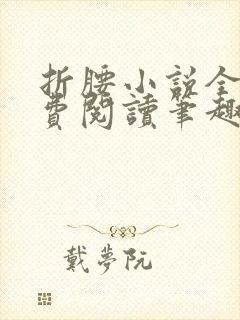 折腰小說全
費閱讀筆趣
戴夢阮